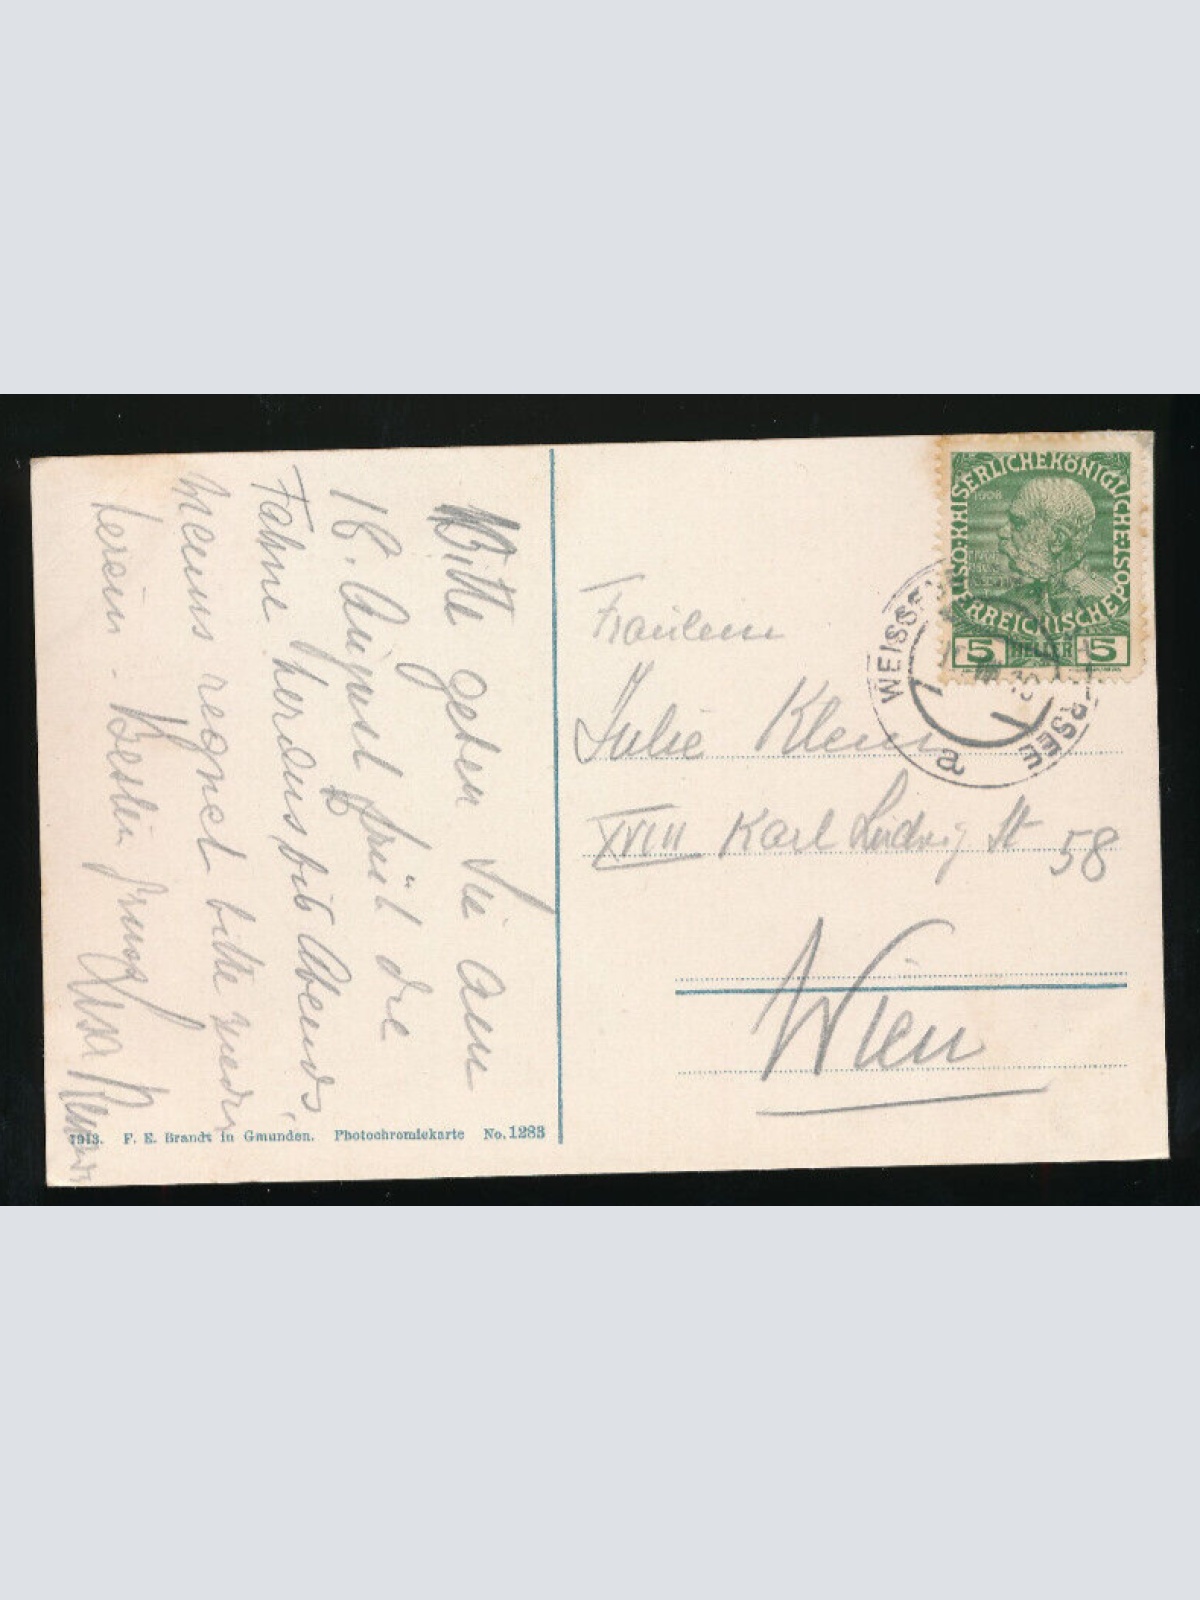 Bitte geben Sie am
18. August früh die
Fahne heraus, bis Abends,
wenns regnet bitte wieder
herein - Besten Gruss
1913. F. E. Brandt in Gmunden. Photochromiekarte No. 1283
KAISERLICHE KÖNIGLICHE
ÖSTERREICHISCHE POST
1908
5 HELLER 5
WEISSE
ERSEE
a
Fräulein
Julie Klein
XVIII Karl Ludwig St 58
Wien